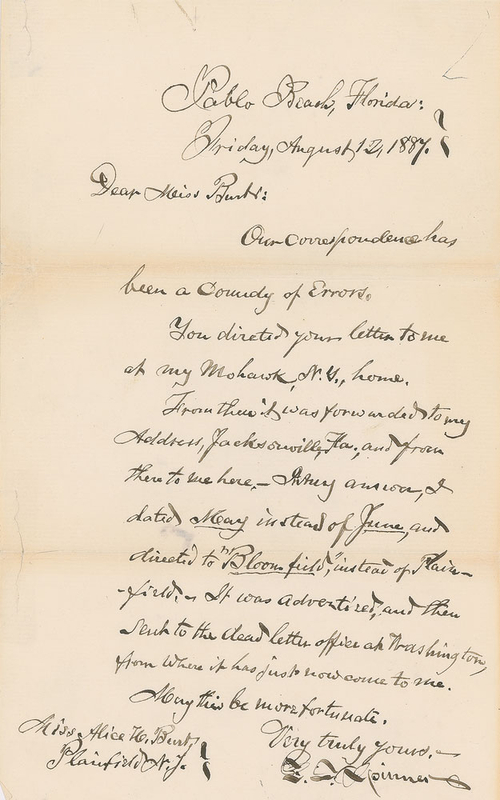 Pablo Beach, Florida:
Friday, August 12, 1887.
Dear Miss Burt:
Our correspondence has
been a Comudy of Errors.
You directed your letter to me
at my Mohawk, N.Y., home.
From there it was forwarded to my
Address, Jacksonville, Fla., and from
there to me here. — In my answer, I
dated May instead of June, and
directed to "Bloomfield," instead of Plain-
-field. — It was advertized, and then
sent to the dead letter office at Washington,
from where it has just now come to me.
May this be more fortunate.
Very truly yours. —
Miss Alice H. Burt,
Plainfield N.J.